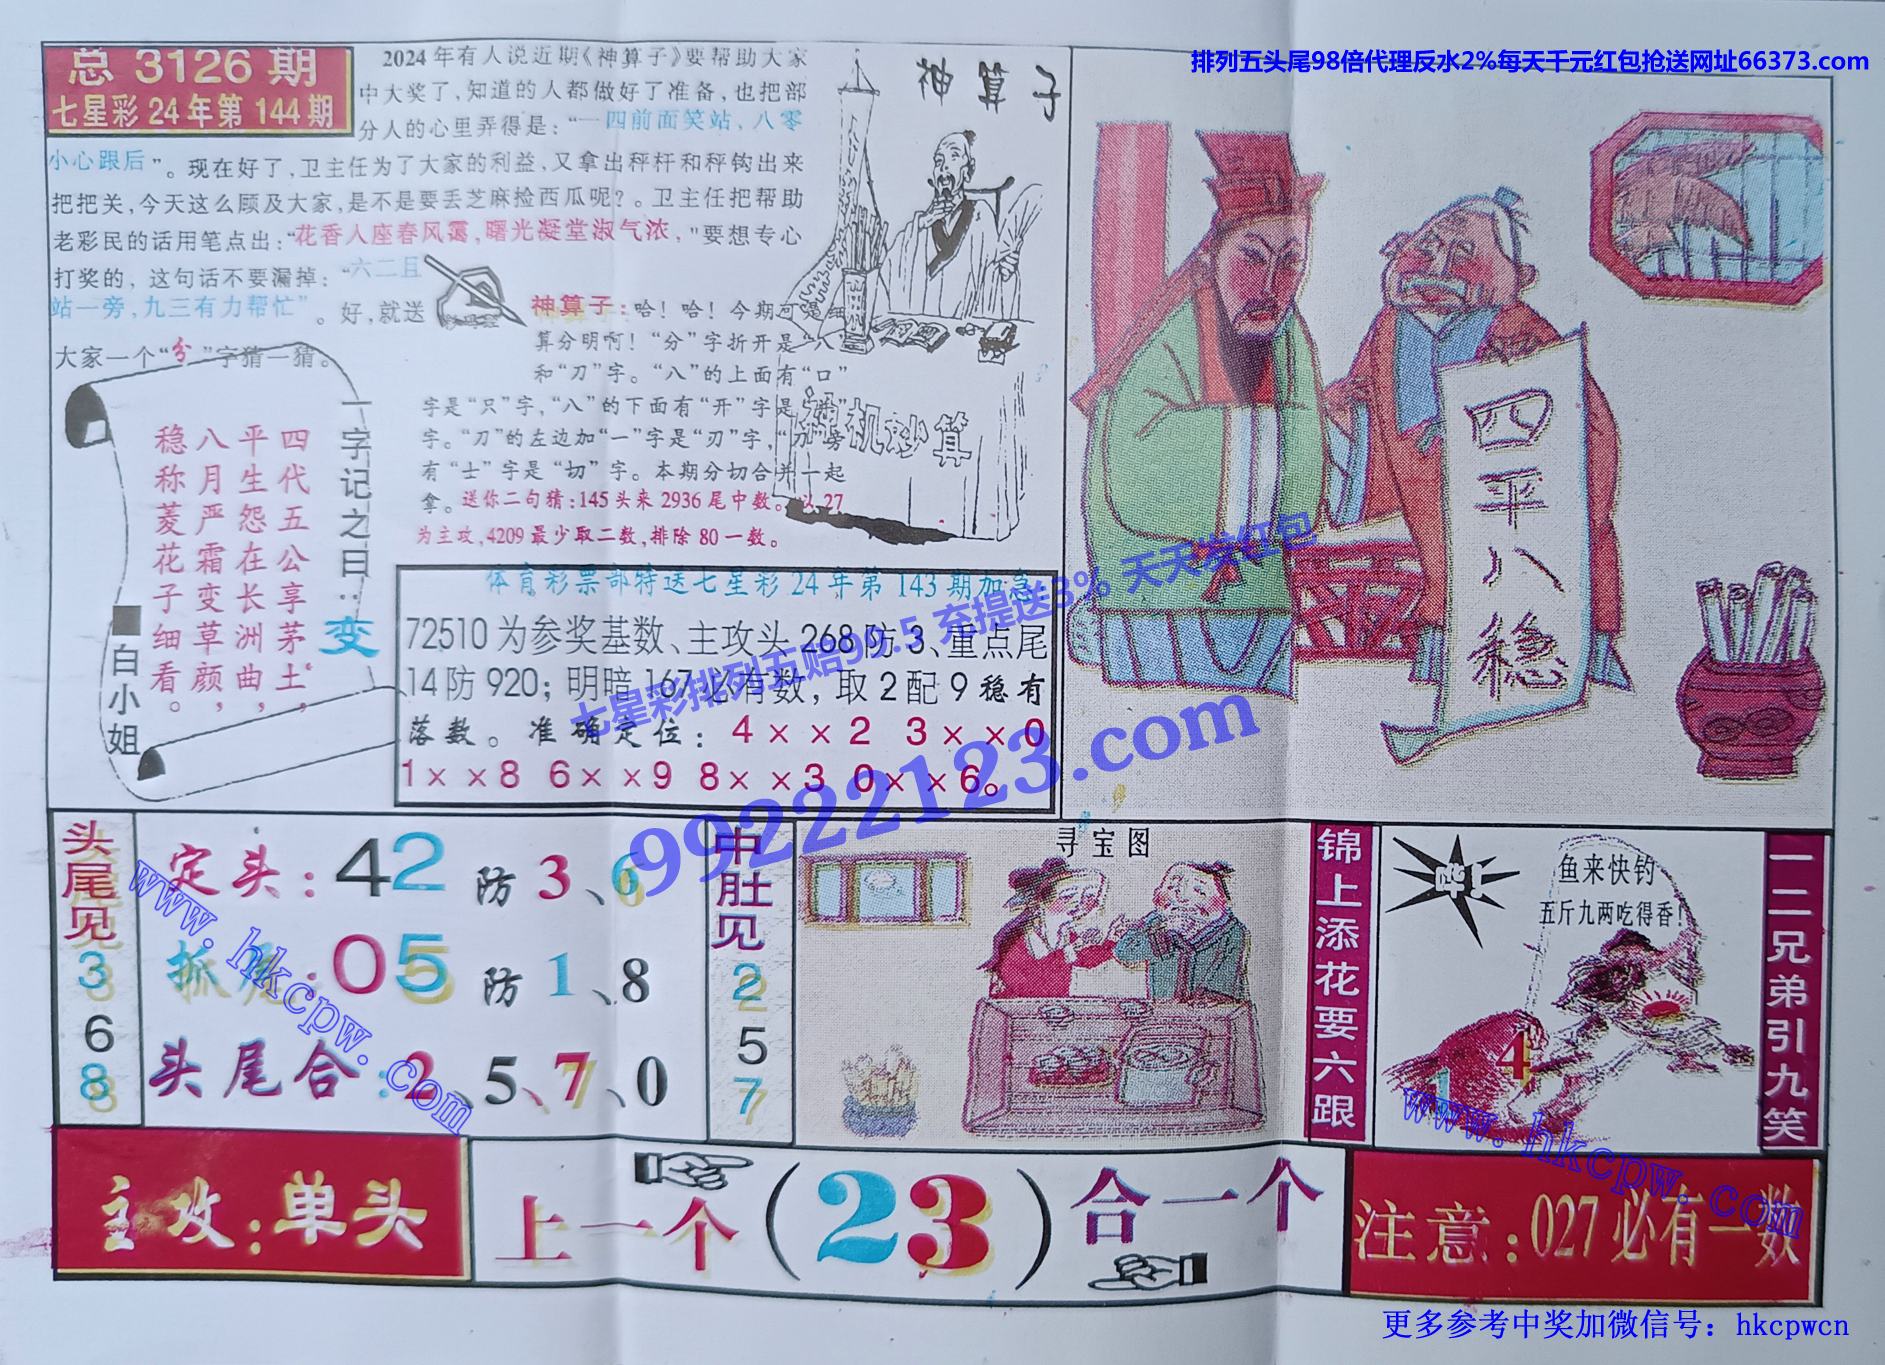 排列五头尾98倍代理反水2%每天千元红包抢送网址66373.com
总 3126 期
七星彩 24 年第 144 期
2024 年有人说近期《神算子》要帮助大家
中大奖了,知道的人都做好了准备,也把部
分人的心里弄得是:“一四前面笑站、八零
小心跟后”。现在好了,卫主任为了大家的利益,又拿出秤杆和秤钩出来
把把关,今天这么顾及大家,是不是要丢芝麻捡西瓜呢?。卫主任把帮助
老彩民的话用笔点出:“花香人座春风霭,曙光凝堂淑气浓,"要想专心
打奖的, 这句话不要漏掉:“六二且
站一旁,九三有力帮忙”。好,就送
大家一个“分”字猜一猜。
神算子
神算子:哈!哈!今期可漫细
算分明啊!“分”字折开是“八”
和“刀”字。“八”的上面有“口”
字是“只”字,“八”的下面有“开”字是
字。“刀”的左边加“一”字是“刃”字,“刀”旁
有“士”字是“切”字。本期分切合并一起
拿。送你二句猜:145 头来 2936 尾中数。以 27
为主攻,4209 最少取二数,排除 80 一数。
神机妙算
一字记之曰:变
四代五公享茅土,
平生怨在长洲曲,
八月严霜变草颜,
稳称菱花子细看。
■白小姐
体育彩票部特送七星彩 24 年第 143 期加急
72510 为参奖基数、主攻头 268 防 3、重点尾
14 防 920; 明暗 167 必有数, 取 2 配 9 稳有
落数。准确定位: 4××2 3××0
1××8 6××9 8××3 0××6。
四平八稳
七星彩排列五赔99.5 充提送3% 天天发红包
99222123.com
头尾见
3
6
8
定头:42 防 3、6
抓尾:05 防 1、8
头尾合:2、5、7、0
中肚见
2
5
7
寻宝图
锦上添花要六跟
鱼来快钓
五斤九两吃得香!
1 4
一二兄弟引九笑
www.hkcpw.com
www.hkcpw.com
主攻:单头
上一个(23)合一个
注意:027 必有一数
更多参考中奖加微信号:hkcpwcn